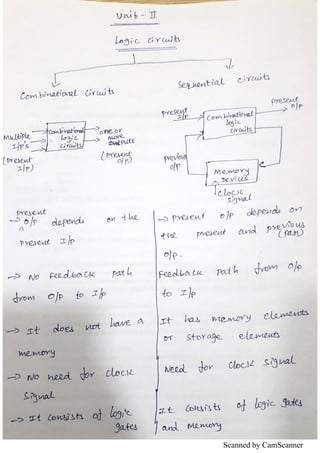 Unit - II
Logic circuits
Combinational circuits
Sequential circuits
Multiple
I/p's
(Present
I/p)
Combinational
logic
circuits
one or
more
outputs
(Present
o/p)
Present
I/p
Combinational
logic
circuits
Present
o/p
previous
o/p
Memory
Devices
clock
signal
present
-> o/p depends on the
^
present I/p
-> No Feedback path
from o/p to I/p
-> It does not have a
memory
-> No need for clock
signal
-> It consists of logic
gates
-> present o/p depends on
the present and previous
(past)
o/p.
Feedback path from o/p
to I/p
It has memory elements
or storage elements
Need for clock signal
It consists of logic gates
and memory
Scanned by CamScanner